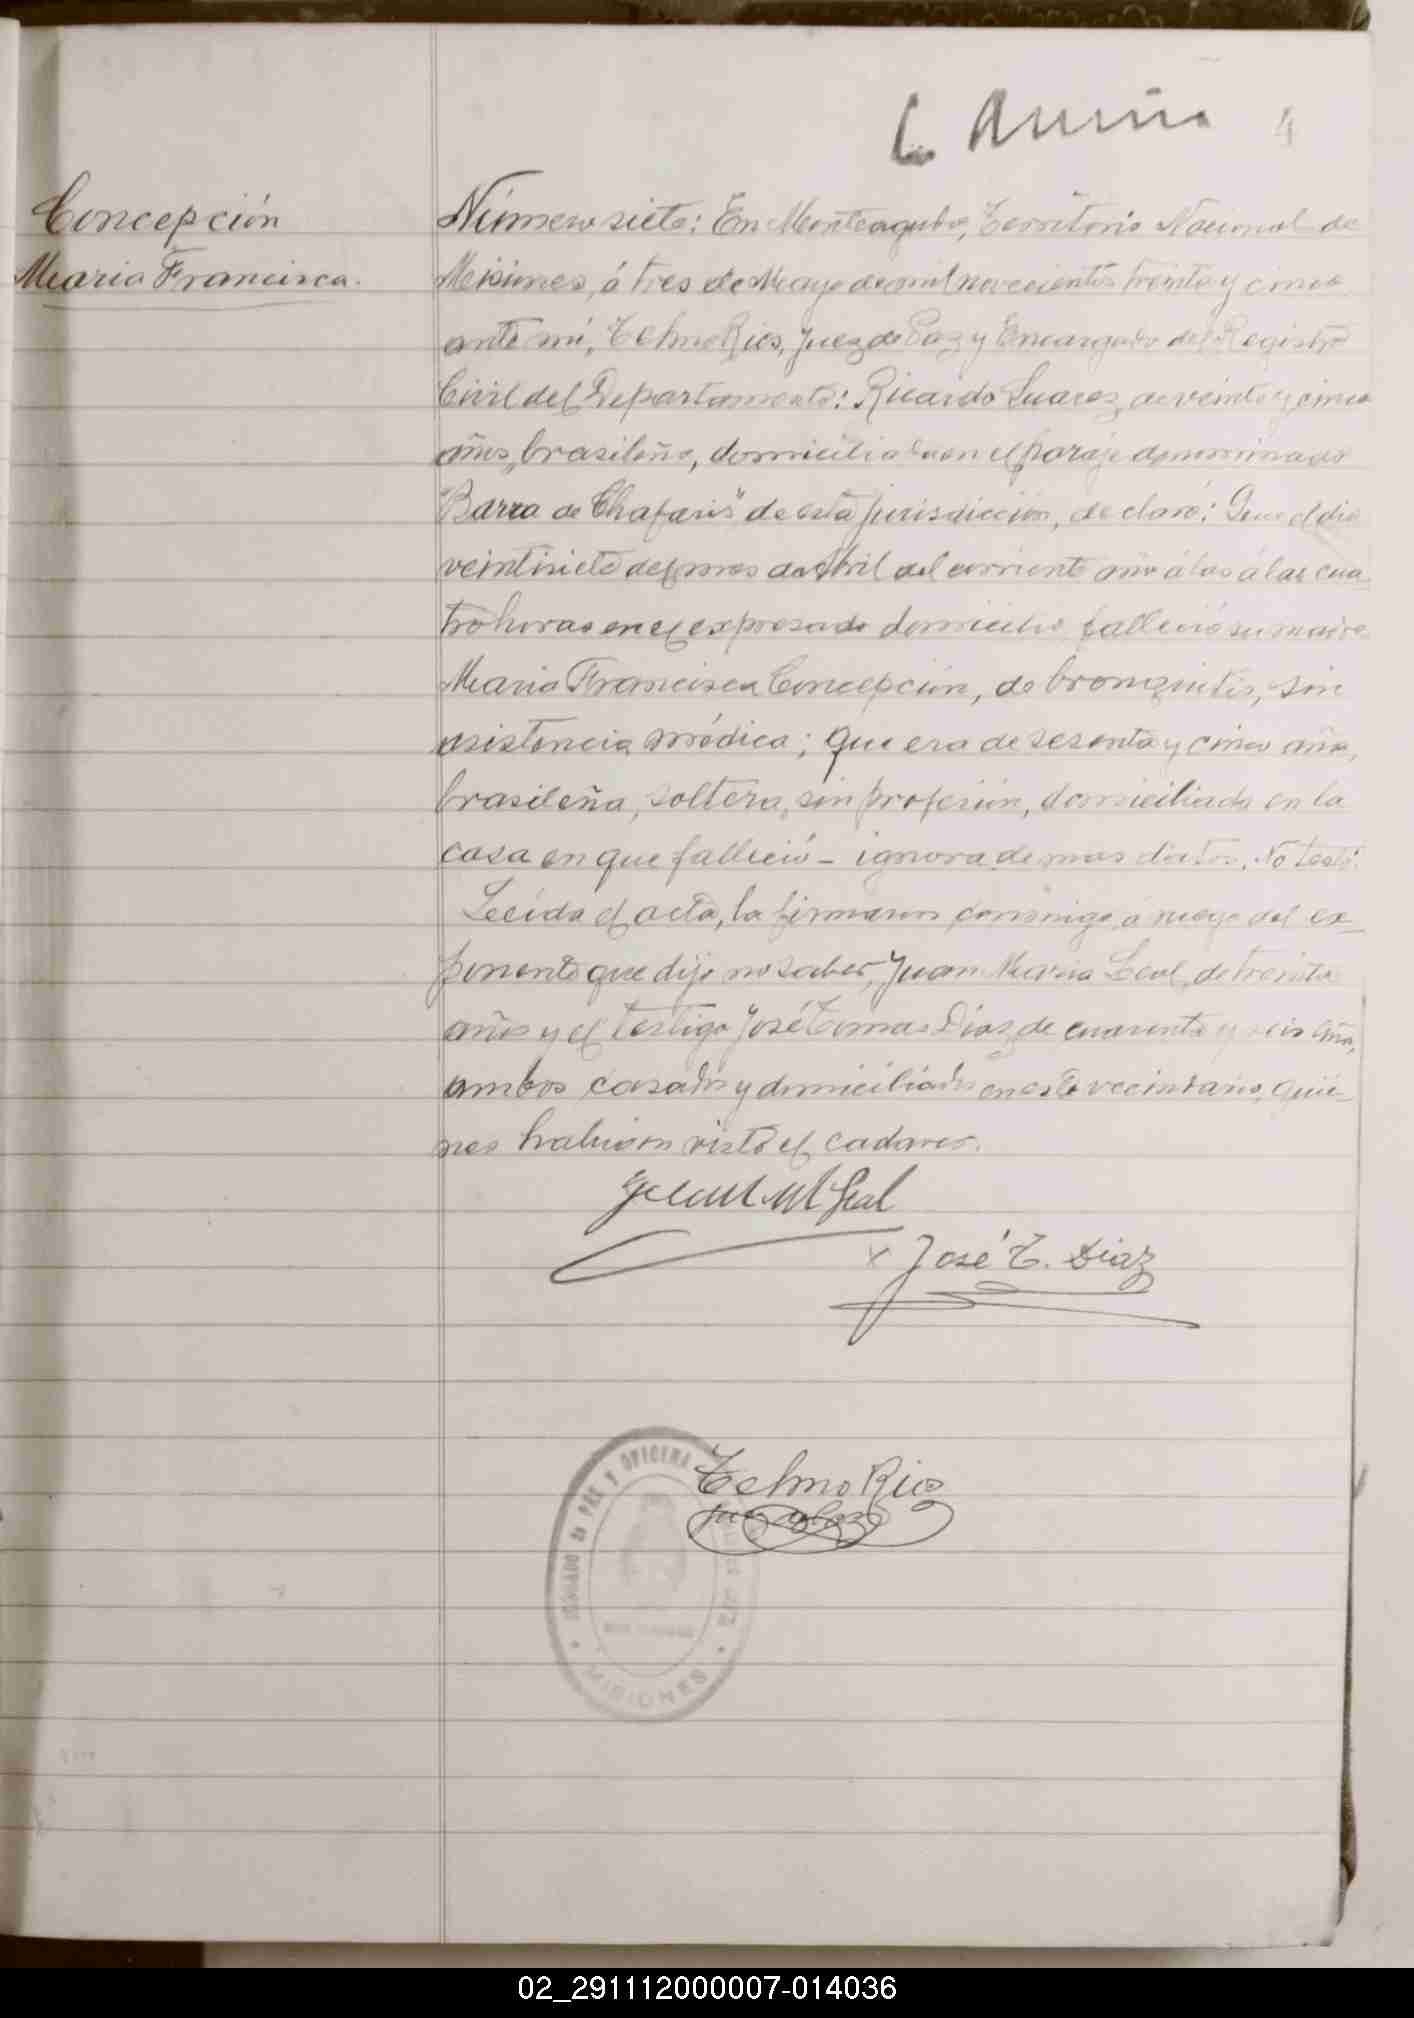 4
Concepción
Maria Francisca.
Número siete: En Monteagudo, Territorio Nacional de
Misiones, á tres de Mayo de mil novecientos treinta y cinco
ante mí, Telmo Rios, Juez de Paz y Encargado del Registro
Civil del Departamento: Ricardo Suarez, de veinte y cinco
años, brasileño, domiciliado en el paraje denominado
"Barra de Chafaris" de esta jurisdicción, declaró: Que el dia
veintisiete del mes de Abril del corriente año á las á las cua-
tro horas en el expresado domicilio falleció su madre
Maria Francisca Concepción, de bronquitis, sin
asistencia médica; que era de sesenta y cinco años,
brasileña, soltera, sin profesión, domiciliada en la
casa en que falleció - ignora demas datos. No testó.
Leída el acta, la firmaron conmigo, á ruego del ex-
ponente que dijo no saber, Juan Maria Leal, de treinta
años y el testigo José Tomas Diaz, de cuarenta y seis años,
ambos casados y domiciliados en este vecindario, quie-
nes habian visto el cadaver.
Juan M Leal
x José T. Diaz
Telmo Rios
Juez de Paz
JUZGADO DE PAZ Y OFICINA
MISIONES
02_291112000007-014036